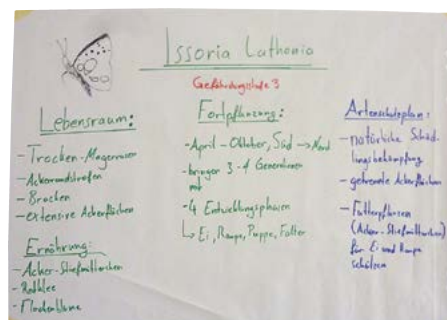 Issoria Lathonia
Gefährdungsstufe 3
Lebensraum:
- Trocken-Magerrasen
- Ackerrandstreifen
- Brachen
- extensive Ackerflächen
Ernährung:
- Acker-Stiefmütterchen
- Rotklee
- Flockenblume
Fortpflanzung:
- April - Oktober, Süd → Nord
- bringen 3-4 Generationen
mit
- 4 Entwicklungsphasen
↳ Ei, Raupe, Puppe, Falter
Artenschutzplan:
- natürliche Schäd-
lingsbekämpfung
- getrennte Ackerflächen
- Futterpflanzen
(Acker-Stiefmütterchen)
für Ei und Raupe
schützen